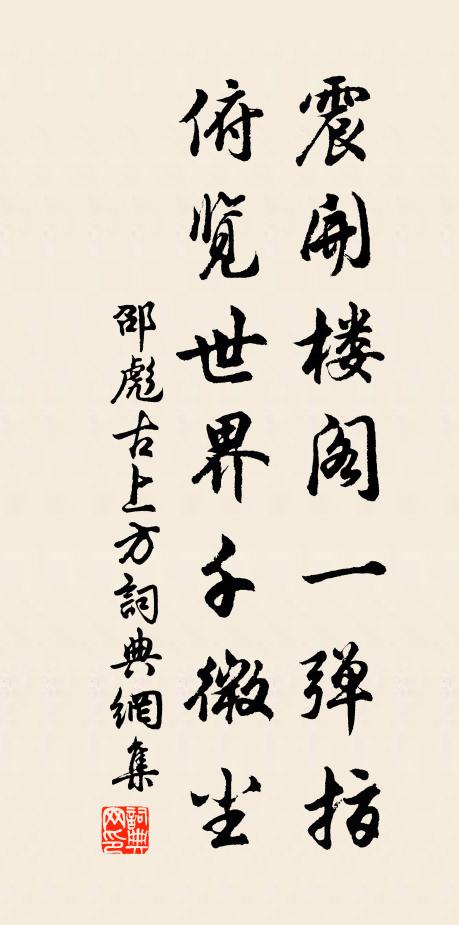 震开楼阁一弹指
俯览世界千微尘
邵彪古上方詞典網集
詞典网印